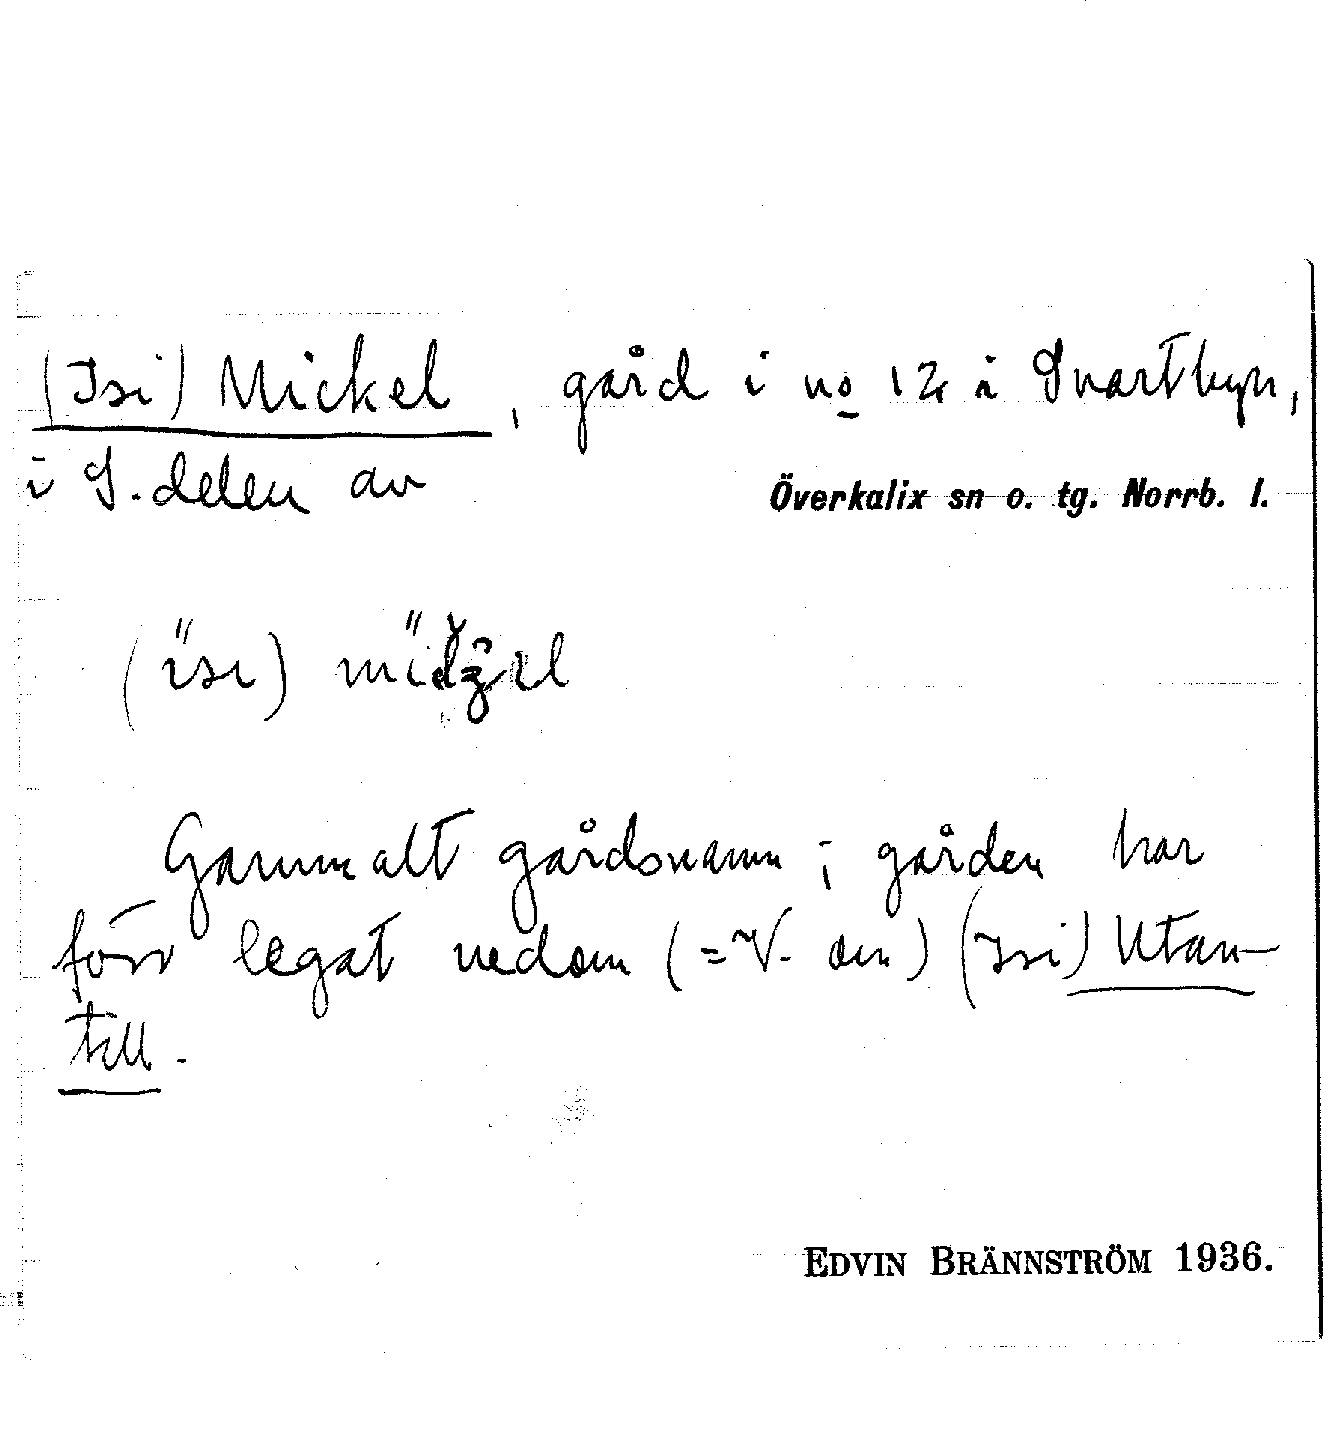 (Isi) Mickel, gård i no 12 i Svartbyn,
i S. delen av
Överkalix sn o. tg. Norrb. l.
(ïsi)
Gammalt gårdsnamn; gården har
förr legat nedom (= V. om) (Isi) Utan-
till.
EDVIN BRÄNNSTRÖM 1936.